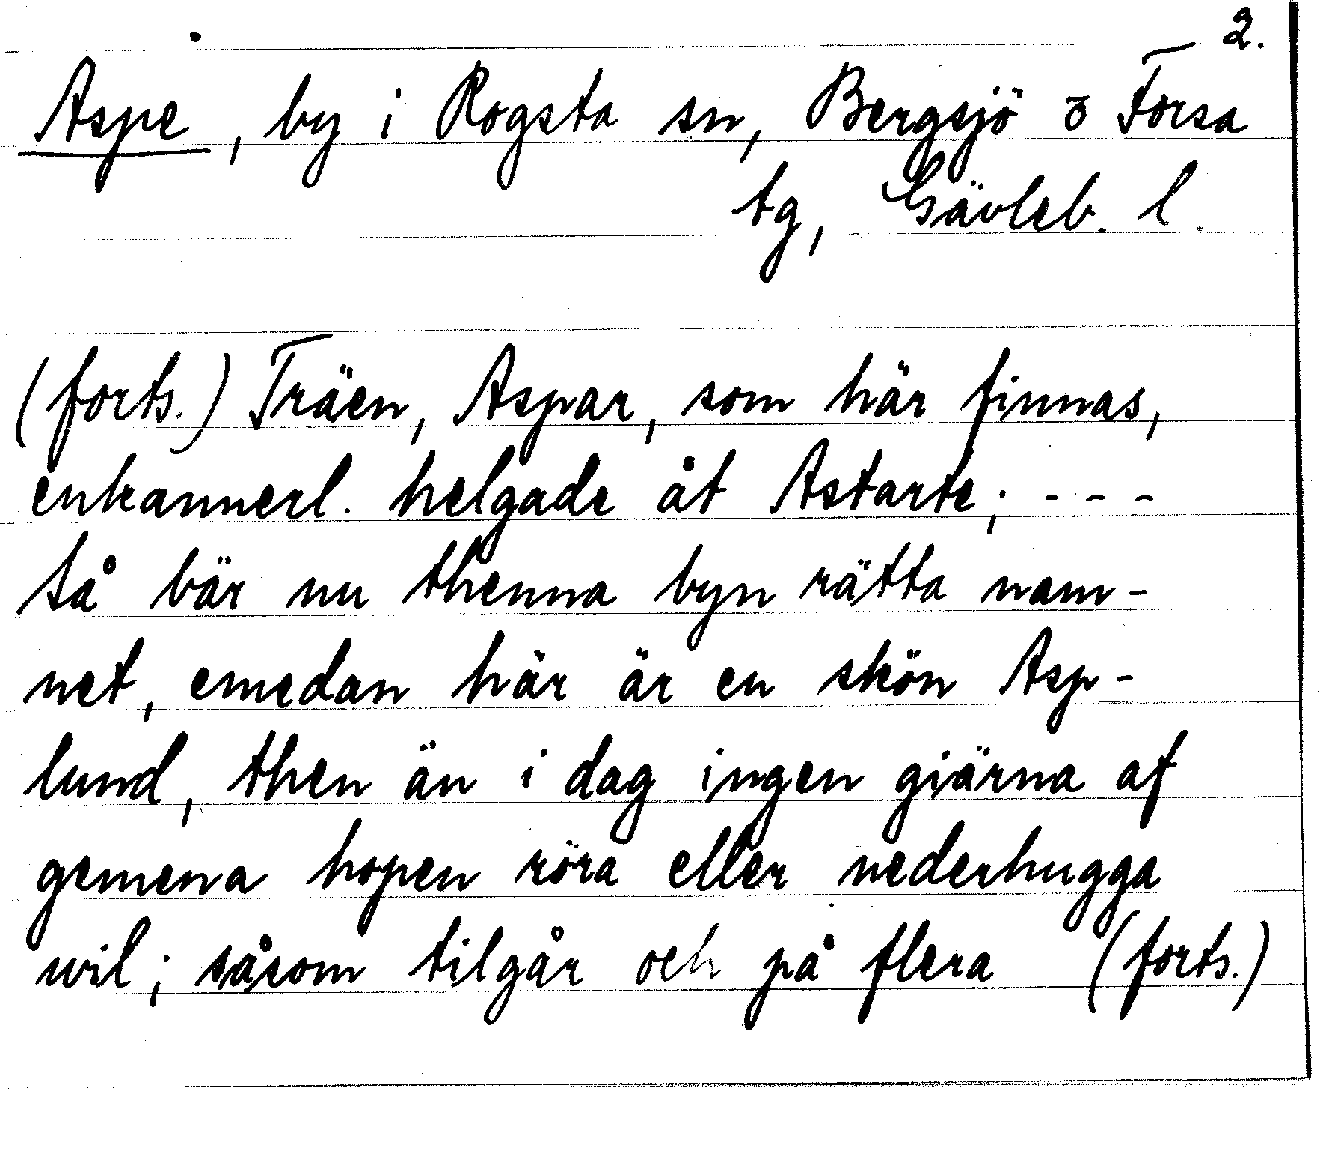 2.
Aspe, by i Rogsta sn, Bergsjö o Forsa
tg, Gävleb. l.
(forts.) Träen, Aspar, som här finnas,
enkannerl. helgade åt Astarte; - - -
så bär nu thenna byn rätta nam-
net, emedan här är en skön Asp-
lund, then än i dag ingen giärna af
gemena hopen röra eller nederhugga
wil; såsom tilgår och på flera (forts.)